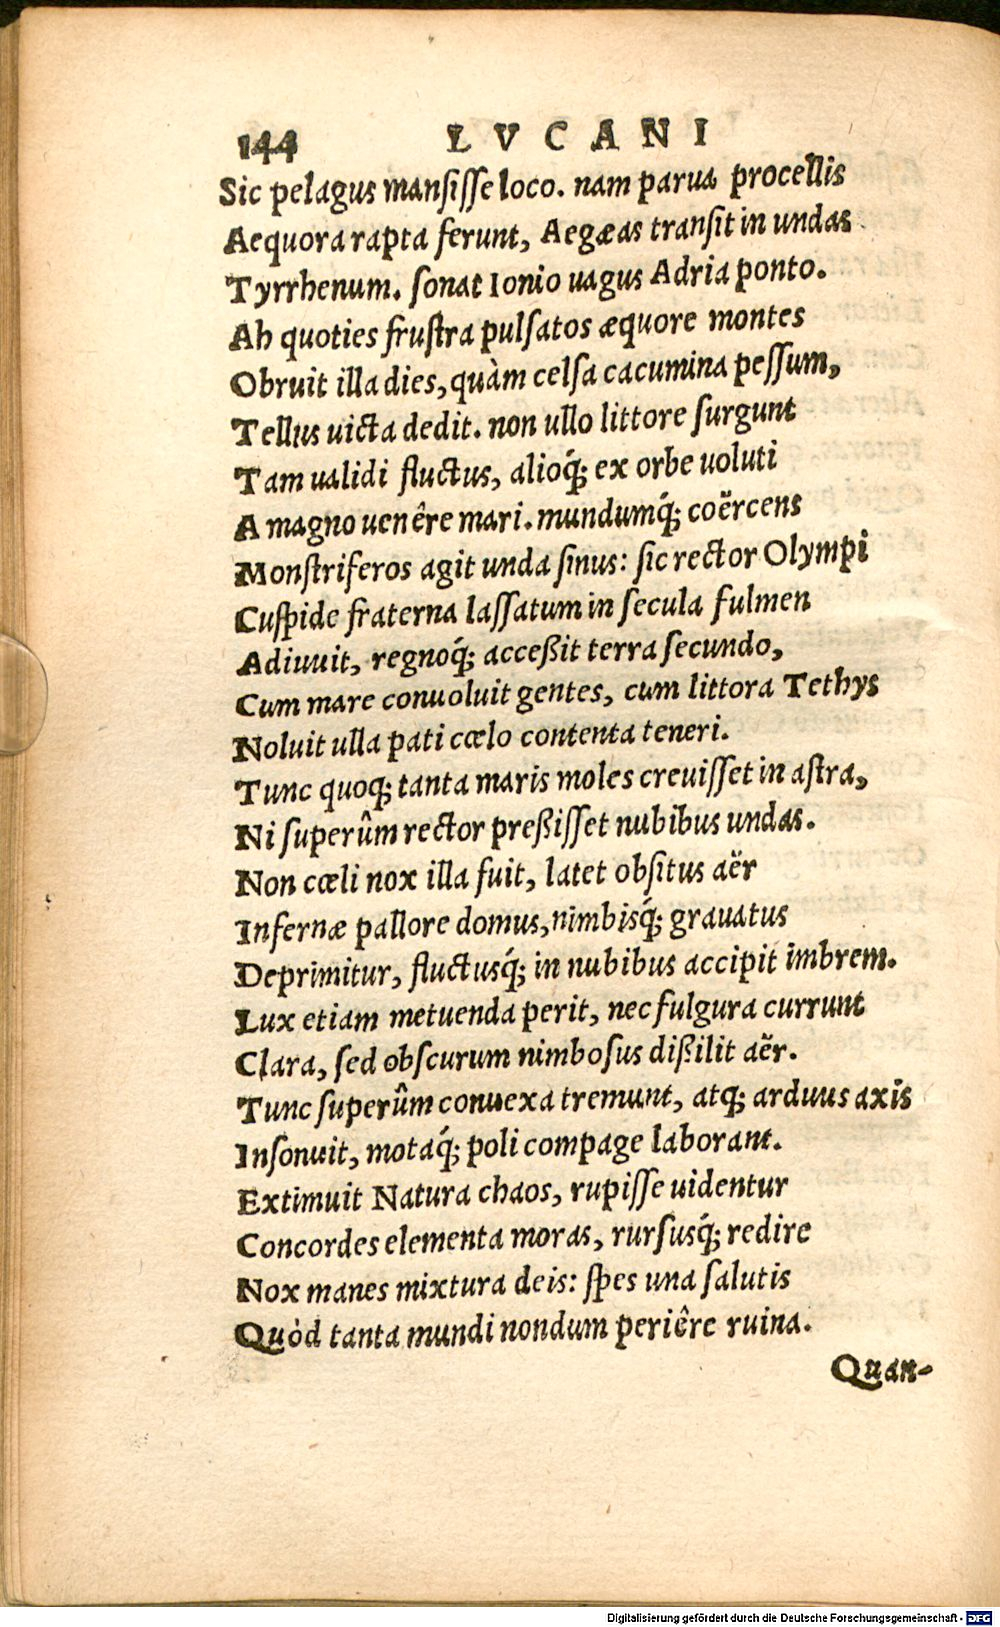 144 LVCANI
Sic pelagus mansiſſe loco. nam parua procellis
Aequora rapta ferunt, Aegæas transit in undas
Tyrrhenum. ſonat Ionio uagus Adria ponto.
Ah quoties fruſtra pulſatos æquore montes
Obruit illa dies, quàm celſa cacumina peſſum,
Tellus uicta dedit. non ullo littore ſurgunt
Tam ualidi fluctus, alioq́; ex orbe uoluti
A magno uenêre mari. mundumq́; coërcens
Monſtriferos agit unda sinus: ſic rector Olympi
Cuſpide fraterna laſſatum in ſecula fulmen
Adiuuit, regnoq́; acceßit terra ſecundo,
Cum mare conuoluit gentes, cum littora Tethys
Noluit ulla pati cœlo contenta teneri.
Tunc quoq; tanta maris moles creuiſſet in aſtra,
Ni ſuperûm rector preßiſſet nubibus undas.
Non cœli nox illa fuit, latet obſitus aër
Infernæ pallore domus, nimbisq́; grauatus
Deprimitur, fluctusq́; in nubibus accipit imbrem.
Lux etiam metuenda perit, nec fulgura currunt
Clara, ſed obſcurum nimboſus dißilit aër.
Tunc ſuperûm conuexa tremunt, atq; arduus axis
Inſonuit, motaq́; poli compage laborant.
Extimuit Natura chaos, rupiſſe uidentur
Concordes elementa moras, rurſusq́; redire
Nox manes mixtura deis: ſpes una ſalutis
Quòd tanta mundi nondum periêre ruina.
Quan-
Digitalisierung gefördert durch die Deutsche Forschungsgemeinschaft - DFG